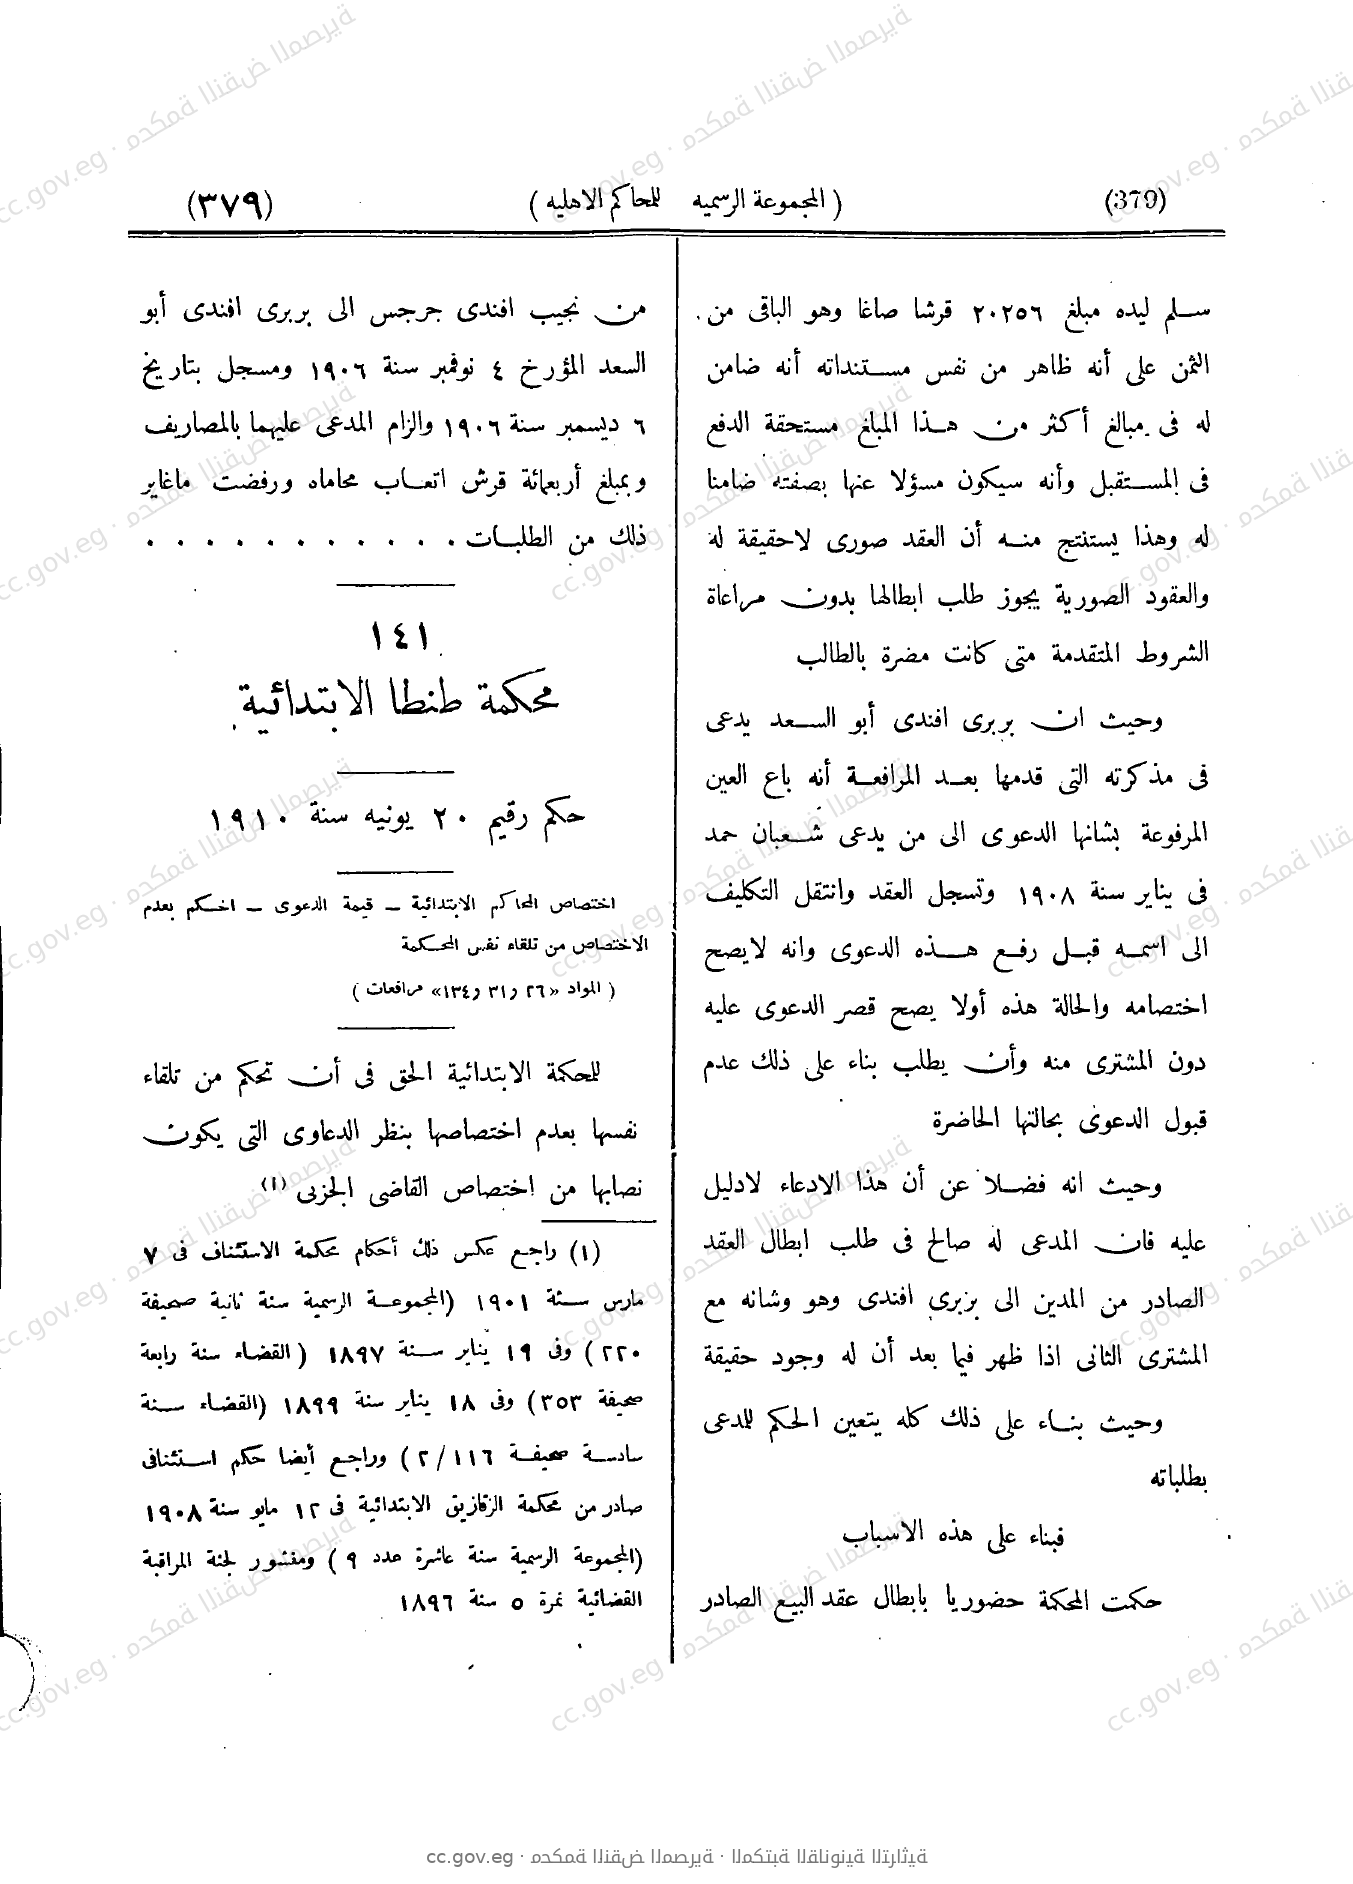 (379) ( المجموعة الرسميه للمحاكم الاهليه ) (٣٧٩)
سلم ليده مبلغ ٢٠٢٥٦ قرشا صاغا وهو الباقى من
الثمن على أنه ظاهر من نفس مستنداته أنه ضامن
له فى مبالغ أكثر من هذا المبلغ مستحقة الدفع
فى المستقبل وأنه سيكون مسؤلا عنها بصفته ضامنا
له وهذا يستنتج منه أن العقد صورى لاحقيقة له
والعقود الصورية يجوز طلب ابطالها بدون مراعاة
الشروط المتقدمة متى كانت مضرة بالطالب
وحيث ان بربرى افندى أبو السعد يدعى
فى مذكرته التى قدمها بعد المرافعة أنه باع العين
المرفوعة بشانها الدعوى الى من يدعى شعبان حمد
فى يناير سنة ١٩٠٨ وتسجل العقد وانتقل التكليف
الى اسمه قبل رفع هذه الدعوى وانه لايصح
اختصامه والحالة هذه أولا يصح قصر الدعوى عليه
دون المشترى منه وأن يطلب بناء على ذلك عدم
قبول الدعوى بحالتها الحاضرة
وحيث انه فضلا عن أن هذا الادعاء لادليل
عليه فان المدعى له صالح فى طلب ابطال العقد
الصادر من المدين الى بربرى افندى وهو وشانه مع
المشترى الثانى اذا ظهر فيما بعد أن له وجود حقيقة
وحيث بناء على ذلك كله يتعين الحكم للمدعى
بطلباته
فبناء على هذه الاسباب
حكمت المحكمة حضوريا بابطال عقد البيع الصادر
من نجيب افندى جرجس الى بربرى افندى أبو
السعد المؤرخ ٤ نوفمبر سنة ١٩٠٦ ومسجل بتاريخ
٦ ديسمبر سنة ١٩٠٦ والزام المدعى عليهما بالمصاريف
وبمبلغ أربعمائة قرش اتعاب محاماه ورفضت ماغاير
ذلك من الطلبات . . . . . . . . . . .
١٤١
محكمة طنطا الابتدائية
حكم رقيم ٢٠ يونيه سنة ١٩١٠
اختصاص المحاكم الابتدائية – قيمة الدعوى – احكم بعدم
الاختصاص من تلقاء نفس المحكمة
( المواد «٢٦ و٣١ و١٣٤» مرافعات )
للمحكمة الابتدائية الحق فى أن تحكم من تلقاء
نفسها بعدم اختصاصها بنظر الدعاوى التى يكون
نصابها من اختصاص القاضى الجزئى (١)
(١) راجع عكس ذلك أحكام محكمة الاستئناف فى ٧
مارس سنة ١٩٠١ (المجموعة الرسمية سنة ثانية صحيفة
٢٢٠) وفى ١٩ يناير سنة ١٨٩٧ (القضاء سنة رابعة
صحيفة ٣٥٣) وفى ١٨ يناير سنة ١٨٩٩ (القضاء سنة
سادسة صحيفة ٢/١١٦) وراجع أيضا حكم استئنافى
صادر من محكمة الزقازيق الابتدائية فى ١٢ مايو سنة ١٩٠٨
(المجموعة الرسمية سنة عاشرة عدد ٩) ومنشور لجنة المراقبة
القضائية نمرة ٥ سنة ١٨٩٦
cc.gov.eg · محكمة النقض المصرية · المكتبة القانونية التراثية